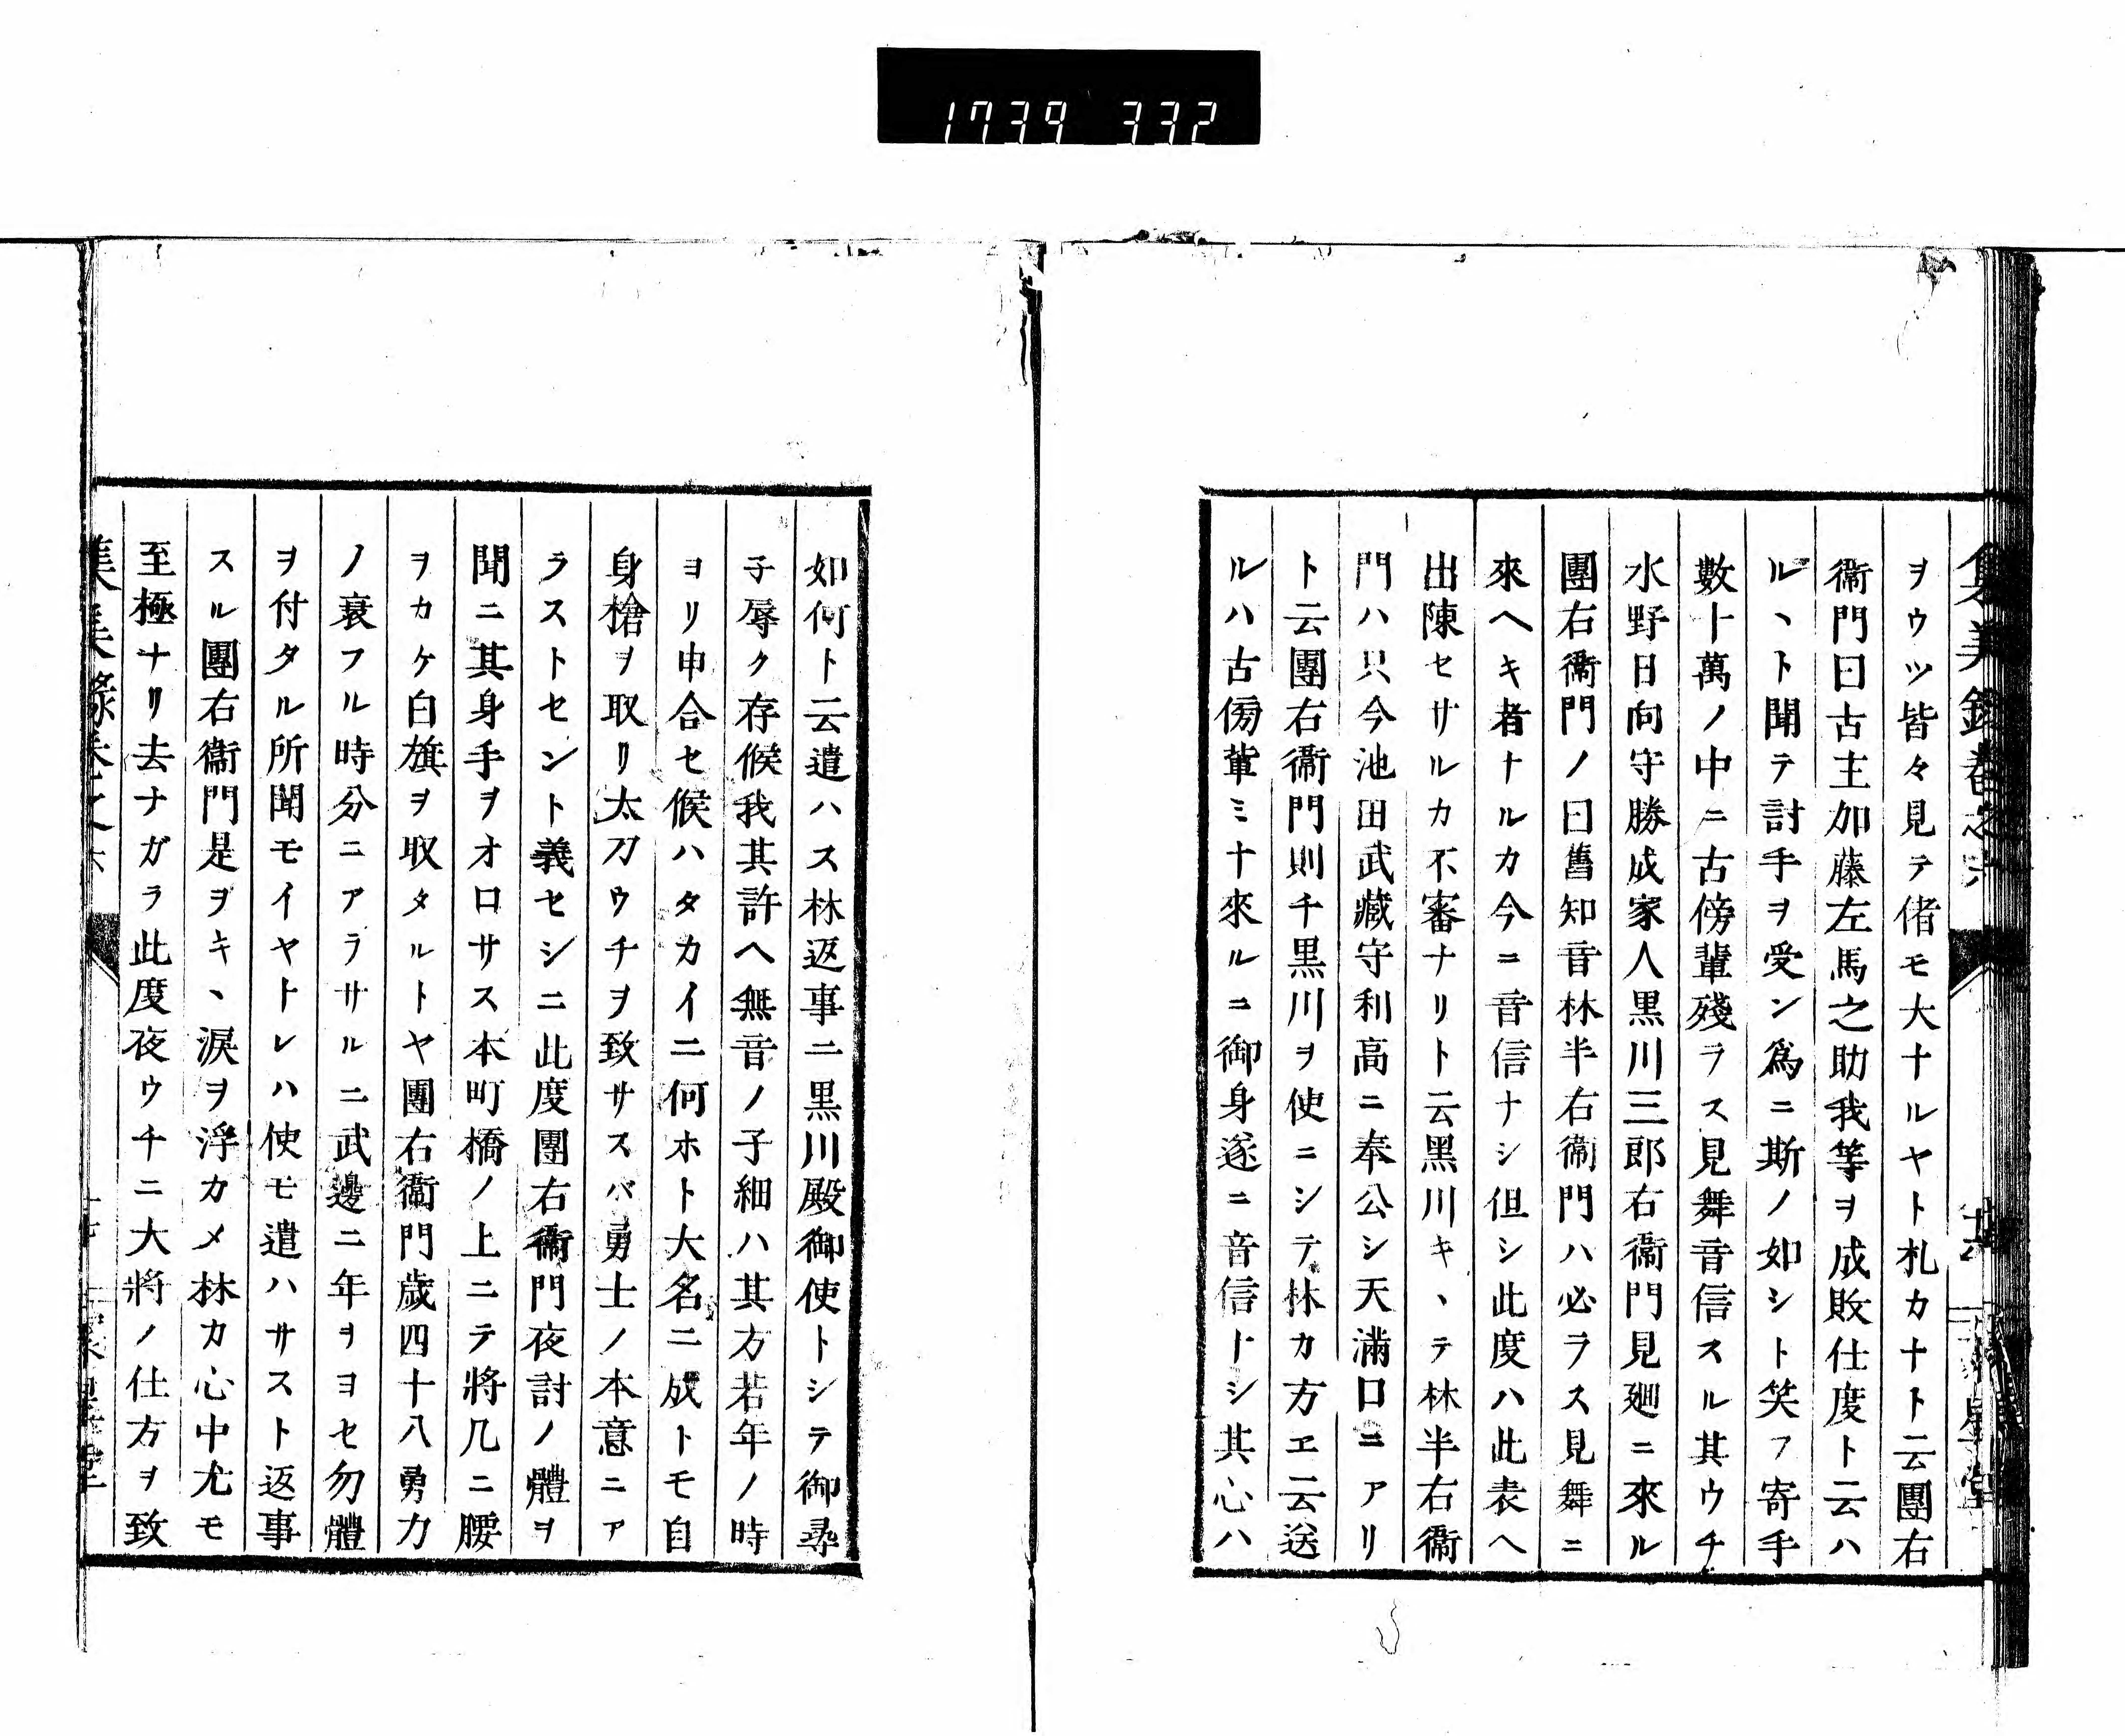 1739 332
ヲウツ皆々見テ偖モ大ナルヤト札カナト云團右
衞門曰古主加藤左馬之助我等ヲ成敗仕度ト云ハ
ルヽト聞テ討手ヲ受ン爲ニ斯ノ如シト笑フ寄手
數十萬ノ中ニ古傍輩殘ラス見舞音信スル其ウチ
水野日向守勝成家人黒川三郎右衞門見廻ニ來ル
團右衞門ノ曰舊知音林半右衞門ハ必ラス見舞ニ
來ヘキ者ナルカ今ニ音信ナシ但シ此度ハ此表ヘ
出陳セサルカ不審ナリト云黒川キヽテ林半右衞
門ハ只今池田武藏守利高ニ奉公シ天滿口ニアリ
ト云團右衞門則チ黒川ヲ使ニシテ林カ方エ云送
ルハ古傍輩ミナ來ルニ御身遂ニ音信ナシ其心ハ
如何ト云遣ハス林返事ニ黒川殿御使トシテ御尋
子辱ク存候我其許ヘ無音ノ子細ハ其方若年ノ時
ヨリ申合セ候ハタカイニ何ホト大名ニ成トモ自
身槍ヲ取リ太刀ウチヲ致サスバ勇士ノ本意ニア
ラストセント義セシニ此度團右衞門夜討ノ體ヲ
聞ニ其身手ヲオロサス本町橋ノ上ニテ將几ニ腰
ヲカケ白旗ヲ取タルトヤ團右衞門歳四十八勇力
ノ衰フル時分ニアラサルニ武邊ニ年ヲヨセ勿體
ヲ付タル所聞モイヤトレハ使モ遣ハサスト返事
スル團右衞門是ヲキヽ涙ヲ浮カメ林カ心中尤モ
至極ナリ去ナガラ此度夜ウチニ大將ノ仕方ヲ致